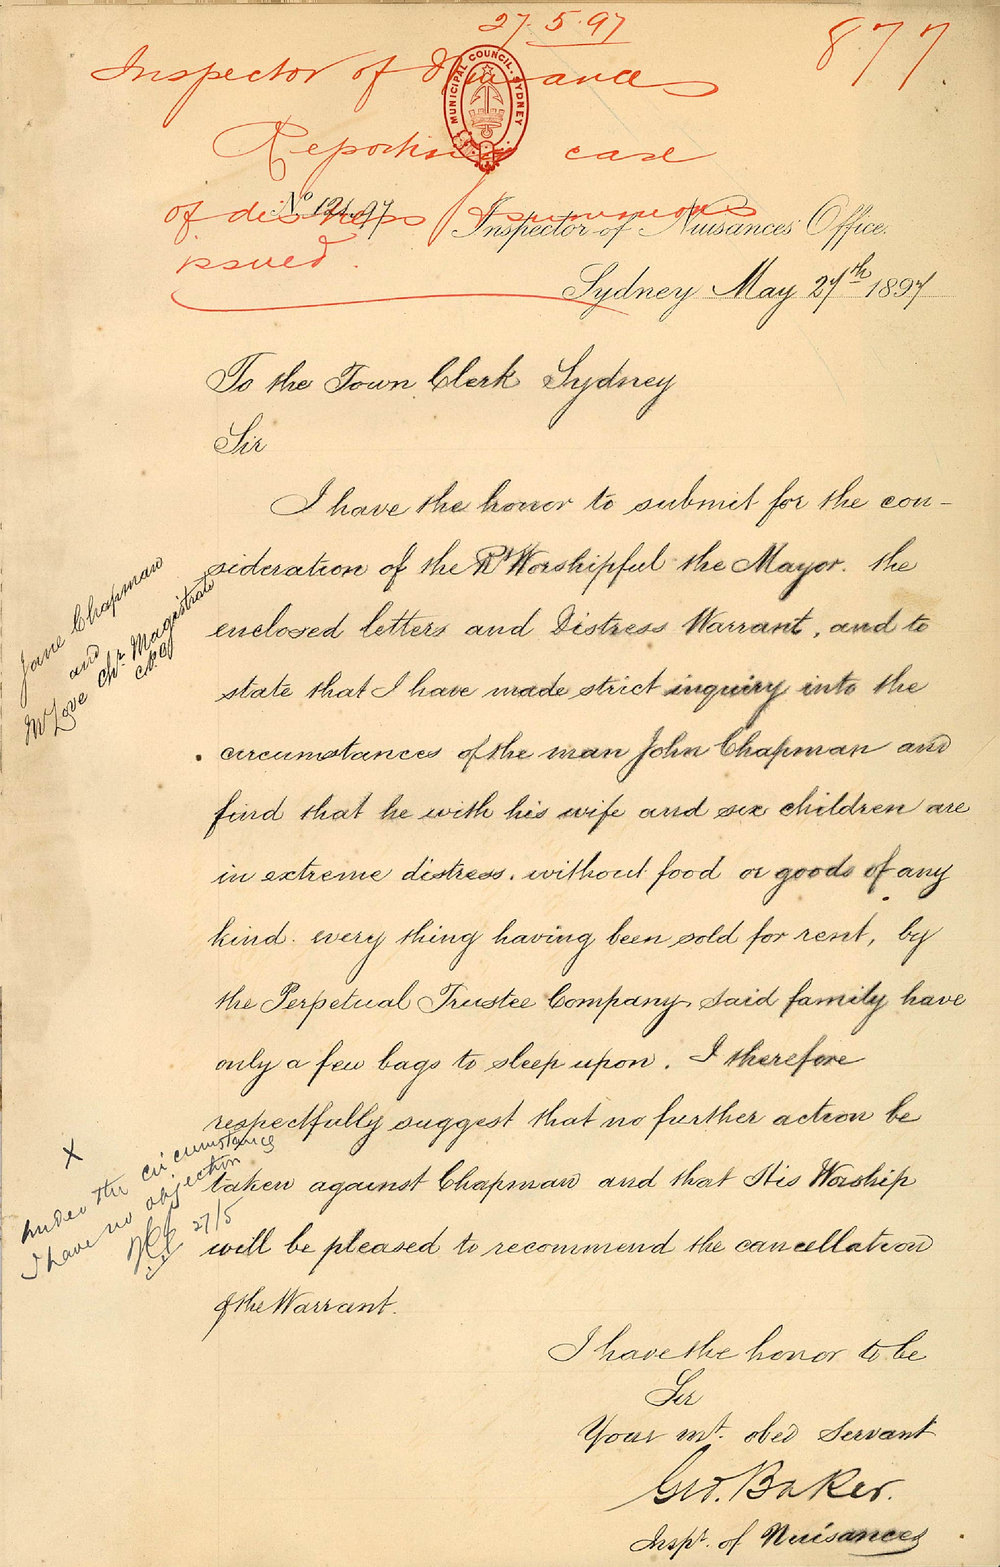 27.5.97
877
Inspector of Nuisances
MUNICIPAL COUNCIL. SYDNEY
Reporting case
of distress / summons
issued.
No 121.97
Inspector of Nuisances Office.
Sydney May 27th 1897
To the Town Clerk Sydney
Sir
I have the honor to submit for the con-
sideration of the Rt Worshipful the Mayor. the
enclosed letters and Distress Warrant, and to
state that I have made strict inquiry into the
circumstances of the man John Chapman and
find that he with his wife and six children are
in extreme distress. without food or goods of any
kind. every thing having been sold for rent, by
the Perpetual Trustee Company, said family have
only a few bags to sleep upon. I therefore
respectfully suggest that no further action be
taken against Chapman and that His Worship
will be pleased to recommend the cancellation
of the Warrant.
I have the honor to be
Sir
Your mt. obed Servant
Geo. Baker.
Inspr. of Nuisances
Jane Chapman
and
Mr Love Chr Magistrate
X
Under the circumstance
I have no objection
27/5